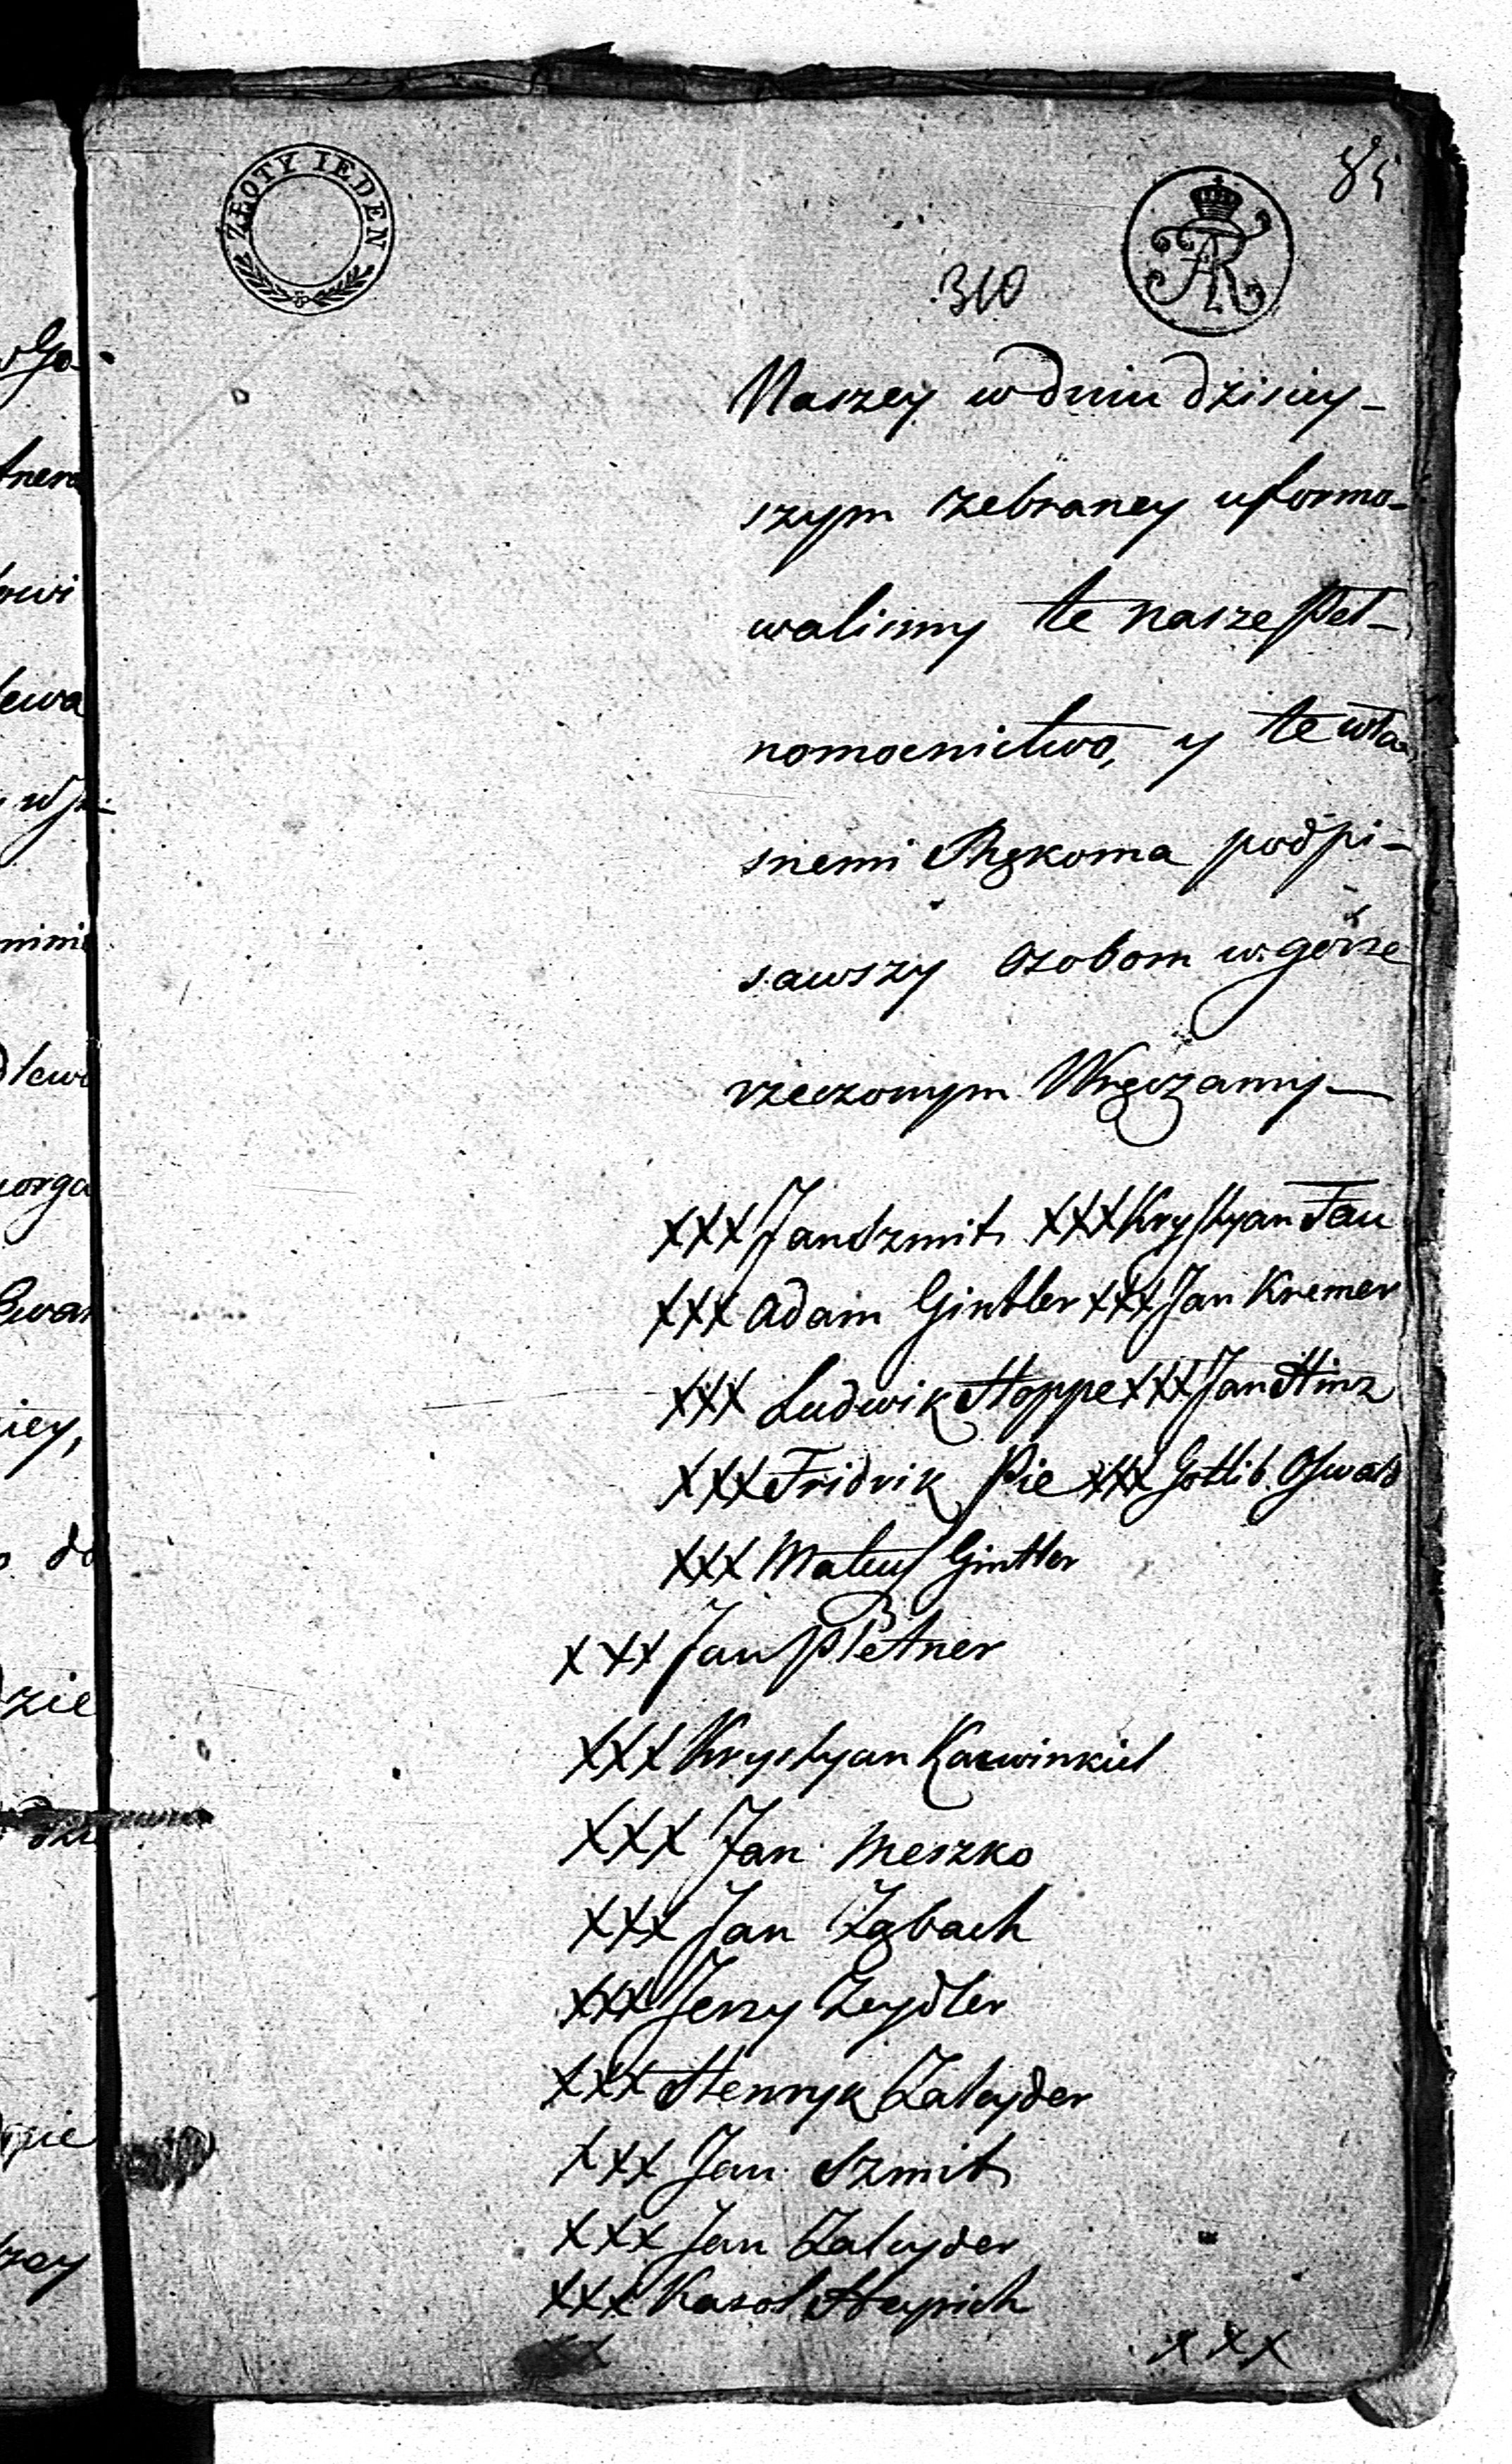 85
ZŁOTY IEDEN
FAR
310
Naszey w dniu dzisiey-
szym zebraney uformo-
walismy te nasze Peł-
nomocnictwo, y te wła-
snemi Rękoma podpi-
sawszy Osobom w górze
rzeczonym Wręczamy—
XXX Jan Szmit XXX Krystyan Fau
XXX Adam Gintler XXX Jan Kremer
XXX Ludwik Hoppe XXX Jan Hinz
XXX Fridrik Pie XXX Gottlib Oswald
XXX Mateus Gintler
XXX Jan Pletner
XXX Krystyan Karwinkiel
XXX Jan Meszko
XXX Jan Zabach
XXX Jerzy Zeydler
XXX Henryk Zaleyder
XXX Jan Szmit
XXX Jan Zaleyder
XXX Karol Heynich
XXX